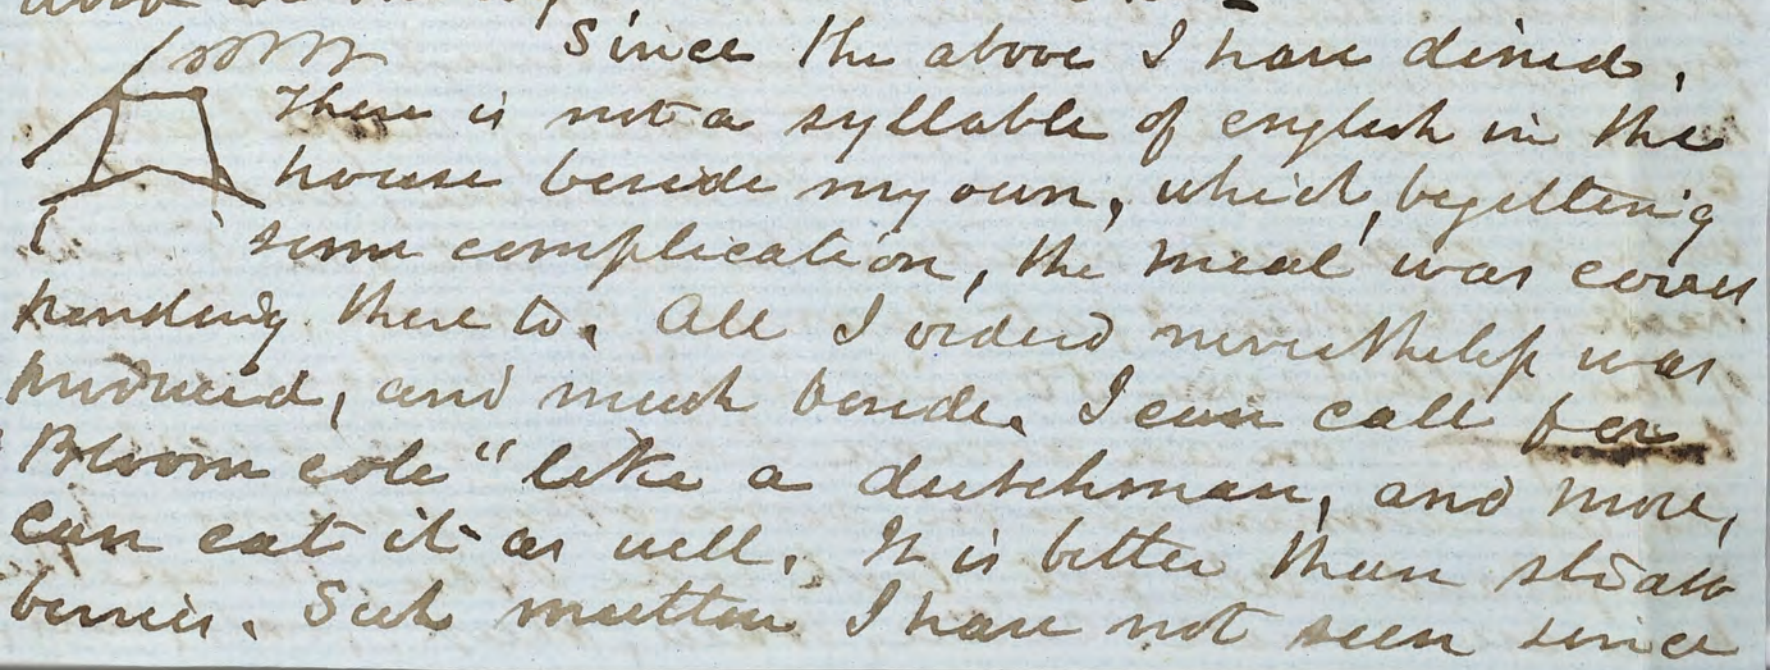 Since the above I have dined.
There is not a syllable of english in the
house beside my own, which, begetting
some complication, the meal was corres
ponding there to. All I ordered nevertheless was
produced, and much beside. I can call for
"Bloom cole" like a dutchman, and more,
can eat it as well. It is better than straw
berries. Such mutton I have not seen since